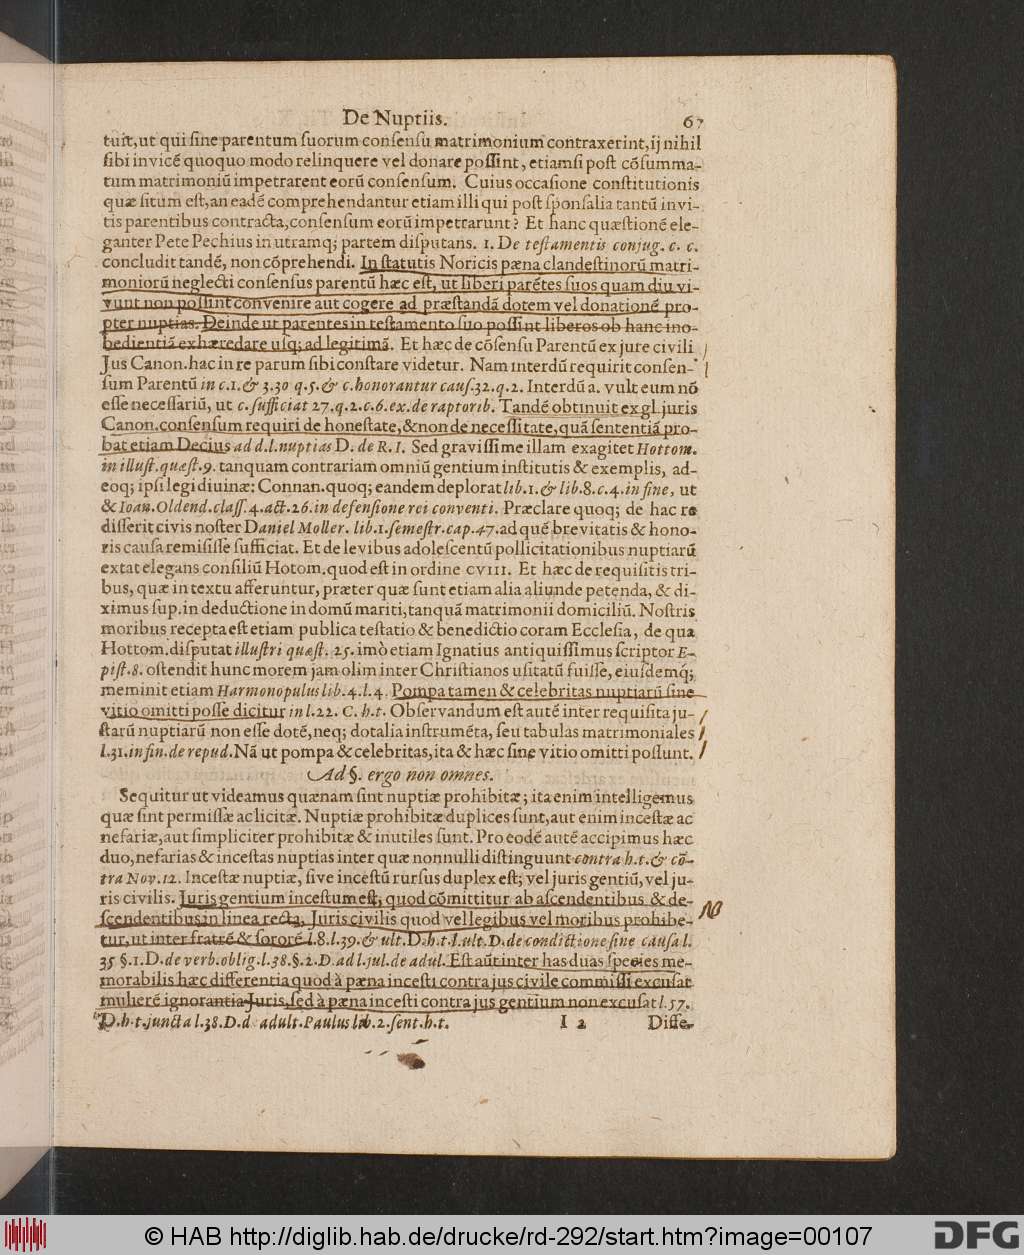 De Nuptiis. 67
tuit, ut qui sine parentum suorum consensu matrimonium contraxerint, ij nihil
sibi invicé quoquo modo relinquere vel donare possint, etiamsi post cõsumma-
tum matrimoniũ impetrarent eorũ consensum. Cuius occasione constitutionis
quæsitum est, an eadé comprehendantur etiam illi qui post sponsalia tantũ invi-
tis parentibus contracta, consensum eorũ impetrarunt? Et hanc quæstioné ele-
ganter Pete Pechius in utramq; partem disputans. 1. De testamentis conjug. c. c.
concludit tandé, non cõprehendi. In statutis Noricis pæna clandestinorũ matri-
moniorũ neglecti consensus parentũ hæc est, ut liberi parétes suos quam diu vi-
vunt non possint convenire aut cogere ad præstandã dotem vel donationé pro-
pter nuptias. Deinde ut parentes in testamento suo possint liberos ob hanc ino-
bedientiã exhæredare usq; ad legitimã. Et hæc de cõsensu Parentũ ex jure civili
Jus Canon. hac in re parum sibi constare videtur. Nam interdũ requirit consen-
sum Parentũ in c. 1. & 3. 30 q. 5. & c. honorantur caus. 32. q. 2. Interdũ a. vult eum nõ
esse necessariũ, ut c. sufficiat 27. q. 2. c. 6. ex. de raptorib. Tandé obtinuit ex gl. juris
Canon. consensum requiri de honestate, & non de necessitate, quã sententiã pro-
bat etiam Decius ad d. l. nuptias D. de R. I. Sed gravissime illam exagitet Hottom.
in illust. quæst. 9. tanquam contrariam omniũ gentium institutis & exemplis, ad-
eoq; ipsi legi divinæ: Connan. quoq; eandem deplorat lib. 1. & lib. 8. c. 4. in fine, ut
& Ioan. Oldend. class. 4. act. 26. in defensione rei conventi. Præclare quoq; de hac re
disserit civis noster Daniel Moller. lib. 1. semestr. cap. 47. ad qué brevitatis & hono-
ris causa remisisse sufficiat. Et de levibus adolescentũ pollicitationibus nuptiarũ
extat elegans consiliũ Hotom. quod est in ordine CVIII. Et hæc de requisitis tri-
bus, quæ in textu afferuntur, præter quæ sunt etiam alia aliunde petenda, & di-
ximus sup. in deductione in domũ mariti, tanquã matrimonii domiciliũ. Nostris
moribus recepta est etiam publica testatio & benedictio coram Ecclesia, de qua
Hottom. disputat illustri quæst. 25. imò etiam Ignatius antiquissimus scriptor E-
pist. 8. ostendit hunc morem jam olim inter Christianos usitatũ fuisse, eiusdemq́;
meminit etiam Harmonopulus lib. 4. l. 4. Pompa tamen & celebritas nuptiarũ sine
vitio omitti posse dicitur in l. 22. C. h. t. Observandum est auté inter requisita ju-
starũ nuptiarũ non esse doté, neq; dotalia instruméta, seu tabulas matrimoniales
l. 31. in fin. de repud. Nã ut pompa & celebritas, ita & hæc sine vitio omitti possunt.
Ad §. ergo non omnes.
Sequitur ut videamus quænam sint nuptiæ prohibitæ; ita enim intelligemus
quæ sint permissæ ac licitæ. Nuptiæ prohibitæ duplices sunt, aut enim incestæ ac
nefariæ, aut simpliciter prohibitæ & inutiles sunt. Pro eodé auté accipimus hæc
duo, nefarias & incestas nuptias inter quæ nonnulli distinguunt contra h. t. & cõ-
tra Nov. 12. Incestæ nuptiæ, sive incestũ rursus duplex est; vel juris gentiũ, vel ju-
ris civilis. Juris gentium incestum est, quod cõmittitur ab ascendentibus & de-
scendentibus in linea recta, Juris civilis quod vel legibus vel moribus prohibe-
tur, ut inter fratré & sororé l. 8. l. 39. & ult. D. h. t. l. ult. D. de condictione sine causa l.
35 §. 1. D. de verb. oblig. l. 38. §. 2. D. ad l. jul. de adul. Est aũt inter has duas species me-
morabilis hæc differentia quod à pæna incesti contra jus civile commissi excusat
mulieré ignorantia Juris, sed à pæna incesti contra jus gentium non excusat l. 57.
D. h. t. juncta l. 38. D. d adult. Paulus lib. 2. sent. h. t. I 2 Diffe-
© HAB http://diglib.hab.de/drucke/rd-292/start.htm?image=00107
DFG